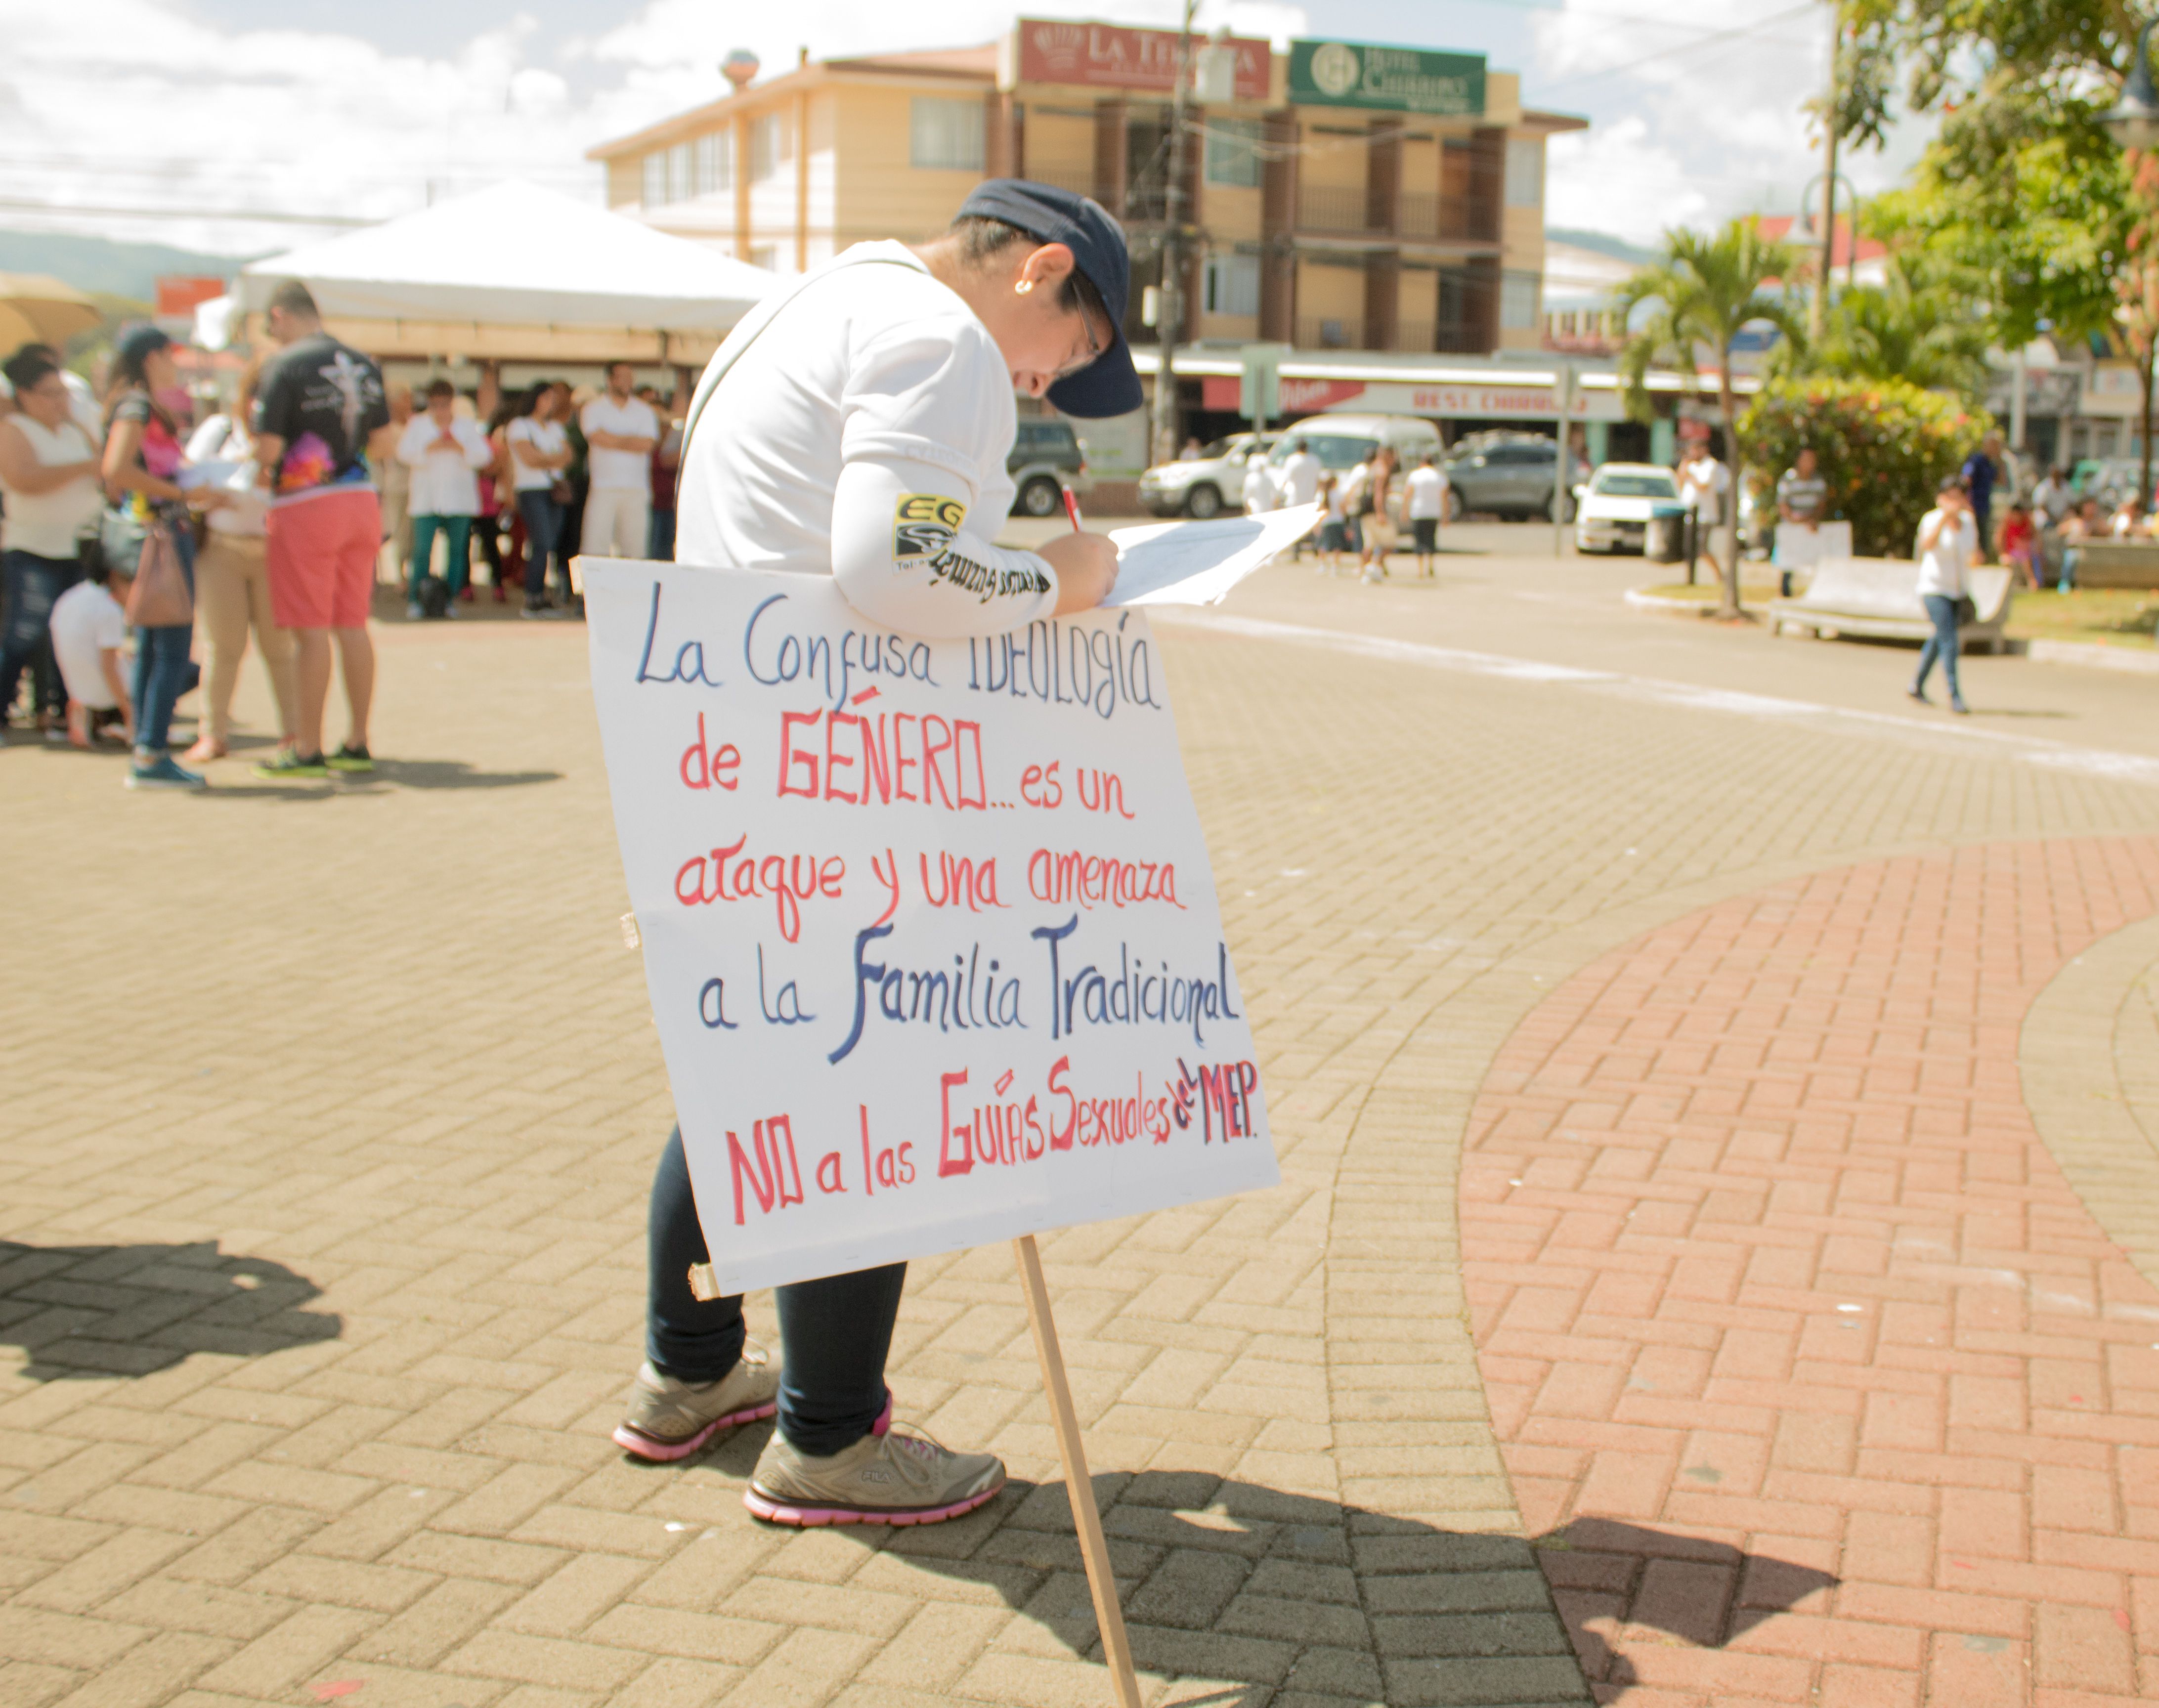 LA TERRAZA
HOTEL
CHIRRIPO
EG
La Confusa IDEOLOgía
de GÉNERO... es un
ataque y una amenaza
a la Familia Tradicional
NO a las Guías Sexuales del MEP.
FILA